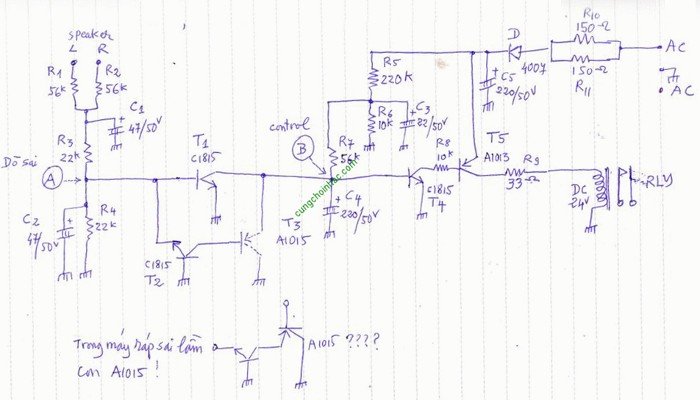 speaker
L R
R1
56K
R2
56K
C1
47/50V
R3
22K
Dò sai
A
C2
47/50V
R4
22K
T1
C1815
C1815
T2
T3
A1015
control
B
R5
220K
R6
10K
C3
22/50V
R7
56K
C4
220/50V
R8
10K
C1815
T4
T5
A1013
R9
33Ω
D
4007
C5
220/50V
R10
150Ω
150Ω
R11
AC
AC
DC
24V
RLY
cungchoinhac.com
Trong máy ráp sai lầm
con A1015 !
A1015 ????